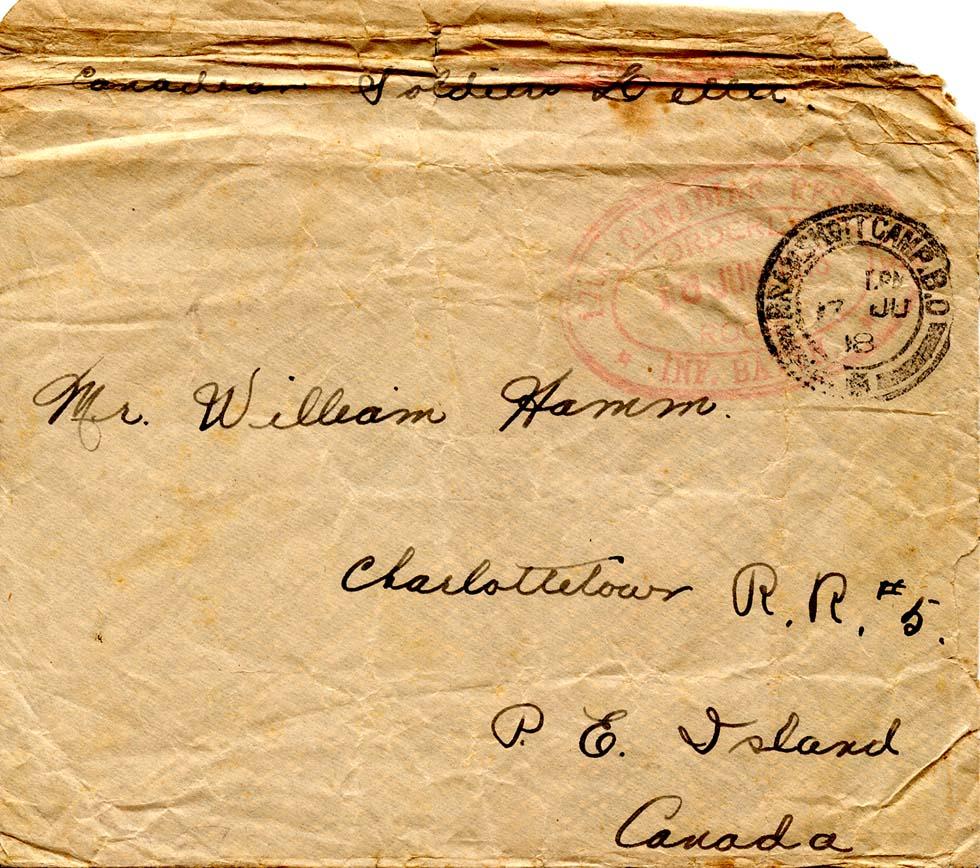 Canadian Soldiers Letter.
CANADIAN RES
ORDERLY
JUN
INF. BA
CAMP. B.O
1 PM
17 JU
18
Mr. William Hamm.
Charlottetown R.R. #5.
P. E. Island
Canada